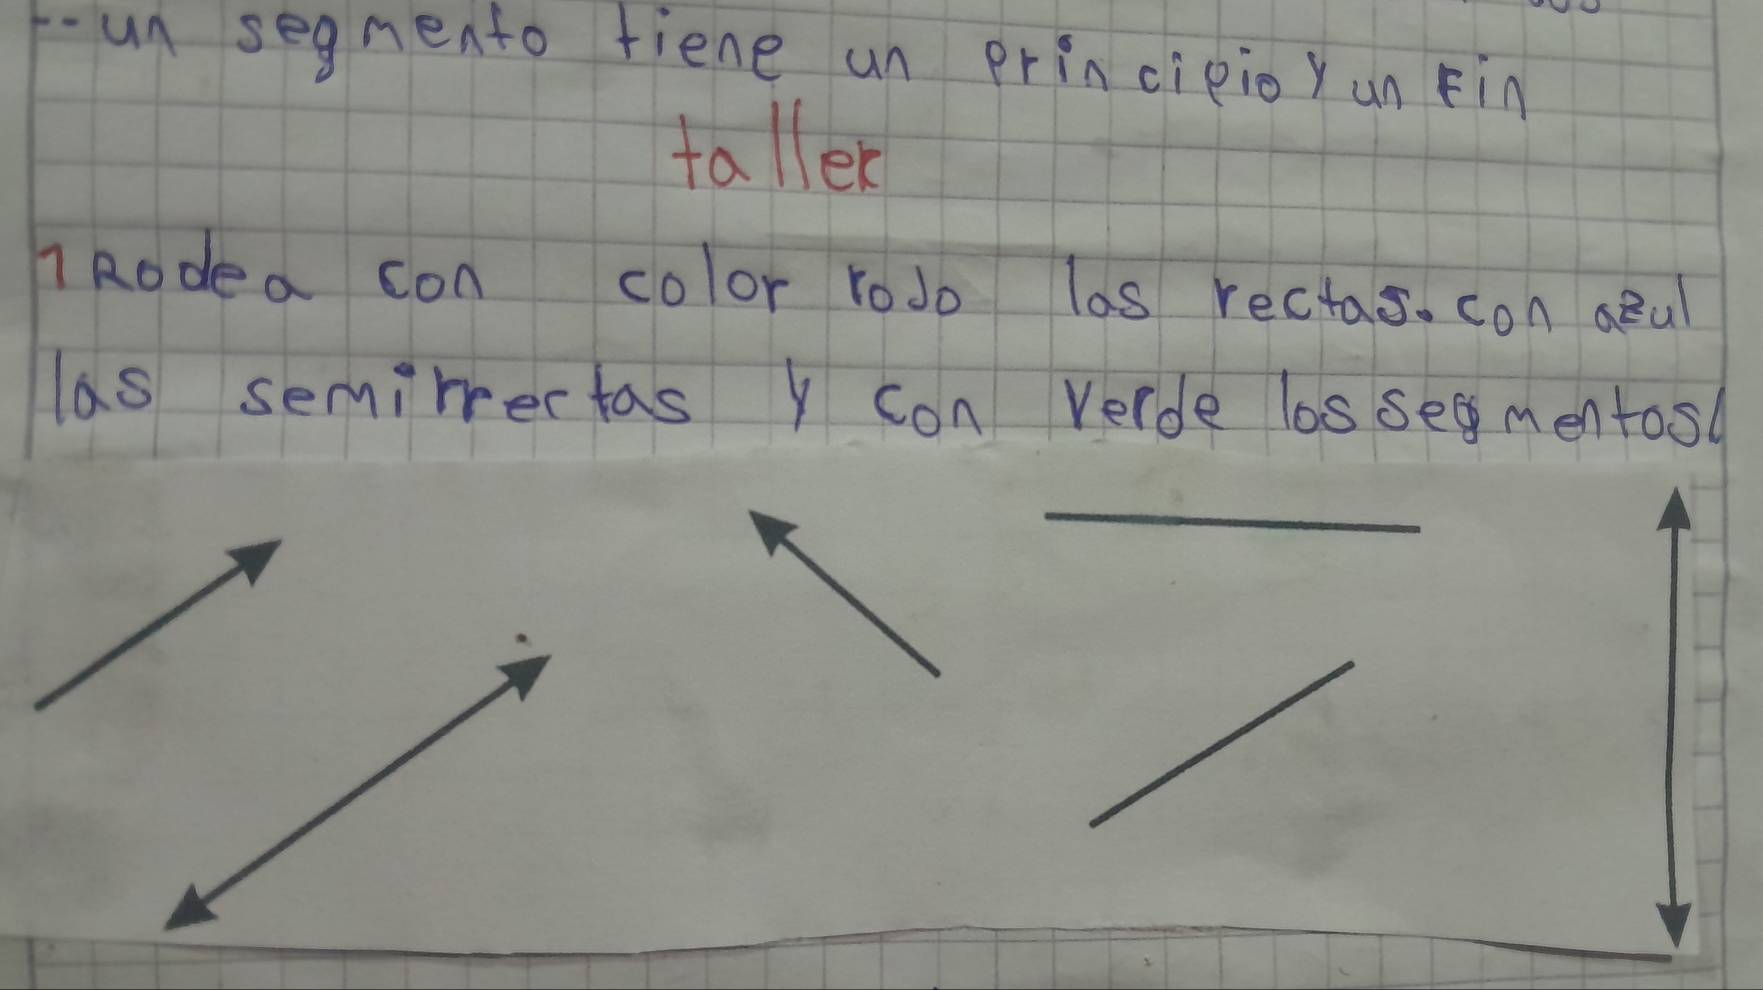 -- un segmento tiene un principio y un Fin
taller
1 Rodea con color rojo las rectas. con azul
las semirrectas y con verde los segmentos